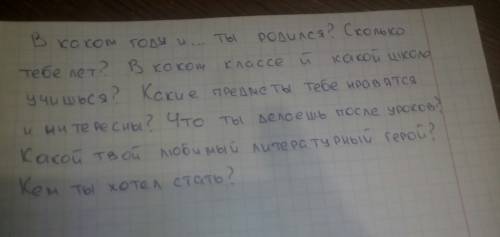 В каком году и... ты родился? Сколько
тебе лет? В каком классе й какой школа
учишься? Какие предметы тебе нравятся
и интересны? Что ты делаешь после уроков?
Какой твой любимый литературный герой?
Кем ты хотел стать?